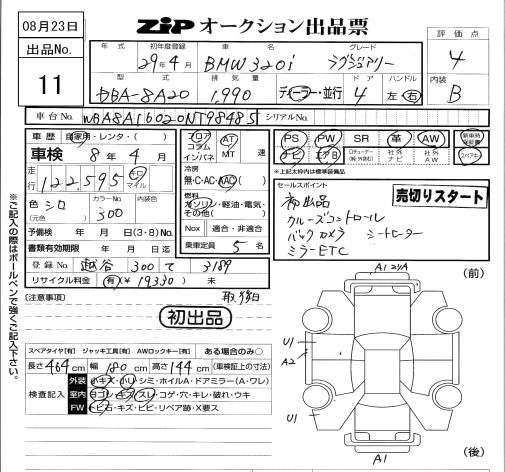 08月23日
出品No.
11
ZIP オークション出品票
評価点
4
内装
B
年式 初年度登録 車名 グレード
29年4月 BMW320i ラグジュアリー
型式 排気量 ドア ハンドル
DBA-8A20 1,990 ディーラー・並行 4 左・右
車台No. WBA8A16020NT98485 シリアルNo.
車歴 自家用・レンタ・( )
車検 8年4月
走行 122,595 キロ マイル
色 シロ カラーNo. 300 内装色
(元色)
予備検 年 月 日(3・8)Mo
書類有効期限 年 月 日迄
登録No. 越谷 300 て 3189
リサイクル料金 有(¥19330) 未
フロア コラム インパネ
AT MT 速
冷房 無・C・AC・AAC
燃料 ガソリン・軽油・電気・その他( )
Nox 適合・非適合
乗車定員 5名
PS PW SR 革 AW 新車時保証書
ナビ エアB ロクューナー(純・外含む) 社外ナビ 社外AW スペアキー
*上記太枠内は標準装備品
セールスポイント
初出品
クルーズコントロール
バックカメラ シートヒーター
ミラーETC
売切りスタート
(注意事項)
取、後日
初出品
スペアタイヤ[有] ジャッキ工具[有] AWロックキー[有] ある場合のみ○
長さ464cm 幅180cm 高さ144cm (車検証上の寸法)
検査記入
外装 小キズ・小U・シミ・ホイルA・ドアミラー(A・ワレ)
室内 ヨゴレ・キズ・スレ・コゲ・穴・キレ・破れ・ウキ
FW トビ石・キズ・ヒビ・リペア跡・X要ス
(前)
A1
U1
A2
U1
A1
(後)
※ご記入の際はボールペンで強くご記入下さい。